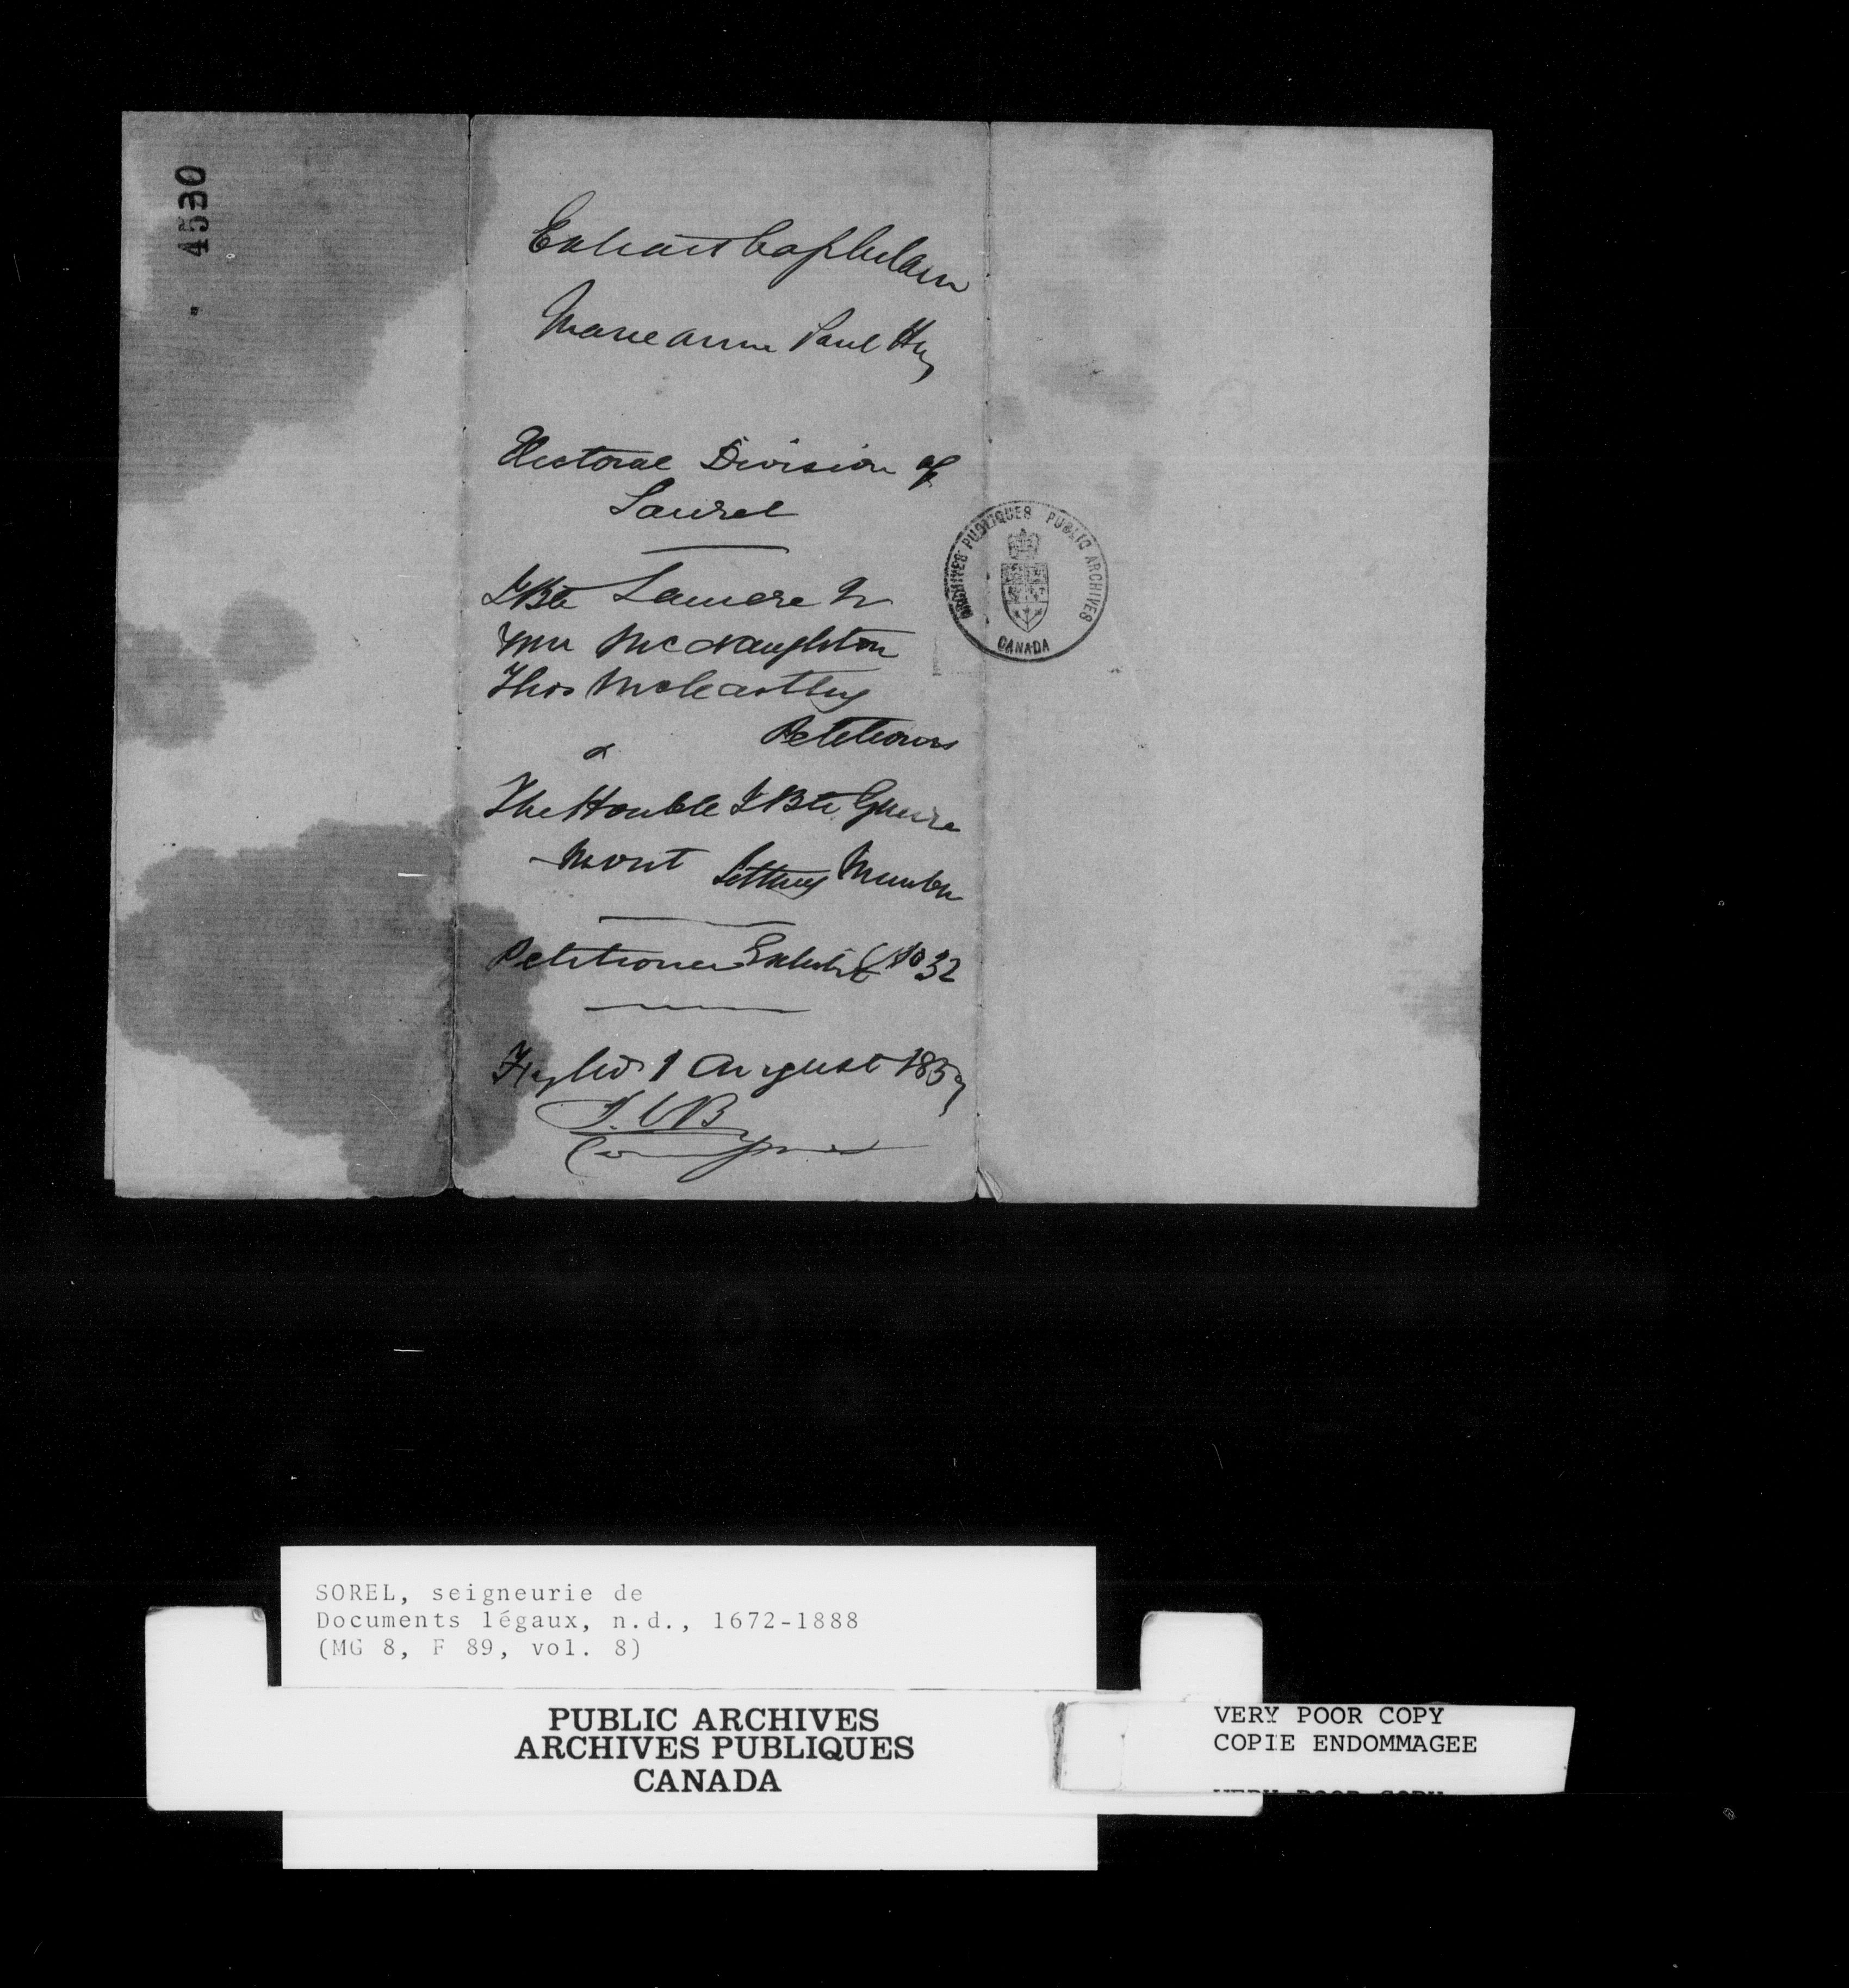 4530
Extrait baptistaire
Marie Anne Paul Hus
Electoral Division of
Saurel
JBte Lamere
Wm McNaughton
Thos McCarthy
Petitioners
&
The Honble J Bte Guevre
-mont Sitting Member
Petitioners Exhibit No 32
Fyled 1 August 1859
ARCHIVES PUBLIQUES PUBLIC ARCHIVES
CANADA
SOREL, seigneurie de
Documents légaux, n.d., 1672-1888
(MG 8, F 89, vol. 8)
PUBLIC ARCHIVES
ARCHIVES PUBLIQUES
CANADA
VERY POOR COPY
COPIE ENDOMMAGEE
VERY POOR COPY